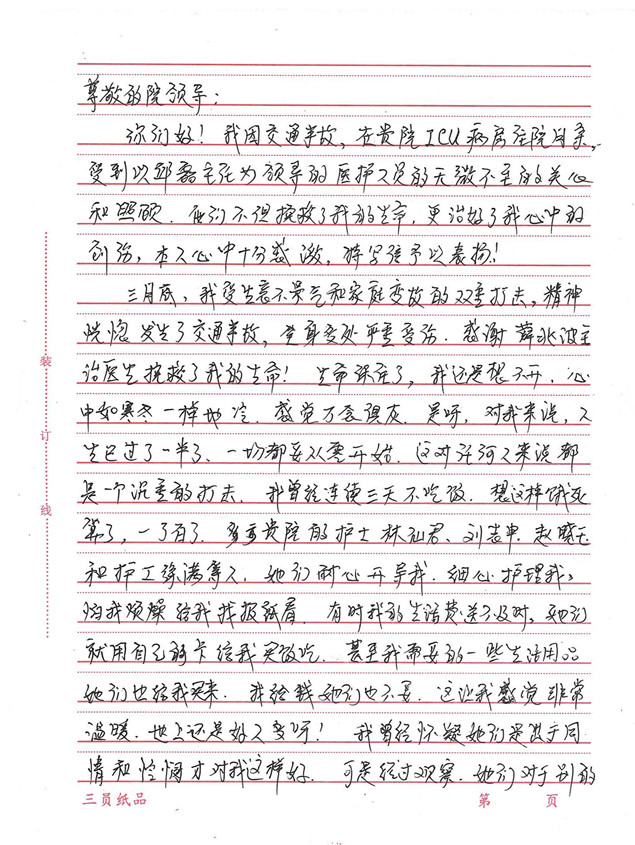 尊敬的院领导：
你们好！我因交通事故，在贵院ICU病房住院月余，
受到以邱磊主任为领导的医护人员的无微不至的关心
和照顾。他们不但挽救了我的生命，更治好了我心中的
创伤，本人心中十分感激，特写信予以表扬！
三月底，我受生意不景气和家庭变故的双重打击，精神
恍惚发生了交通事故，全身多处严重受伤。感谢薛北波主
治医生挽救了我的生命！生命保住了，我还是想不开，心
中如寒冬一样地冷。感觉万念俱灰。是呀，对我来说，人
生已过了一半了、一切都要从零开始。这对任何人来说都
是一个沉重的打击。我曾经连续三天不吃饭。想这样饿死
算了，一了百了。多亏贵院的护士林仙君、刘吉申、赵晓玉
和护工等人，她们耐心开导我。细心护理我，
怕我烦燥给我找报纸看。有时我的生活费送不及时，她们
就用自己的卡给我买饭吃。甚至我需要的一些生活用品
她们也给我买来。我给钱她们也不要。这让我感觉非常
温暖。世上还是好人多呀！我曾经怀疑她们是出于同
情和怜悯才对我这样好。可是经过观察。她们对于别的
装
订
线
三员纸品 第 页